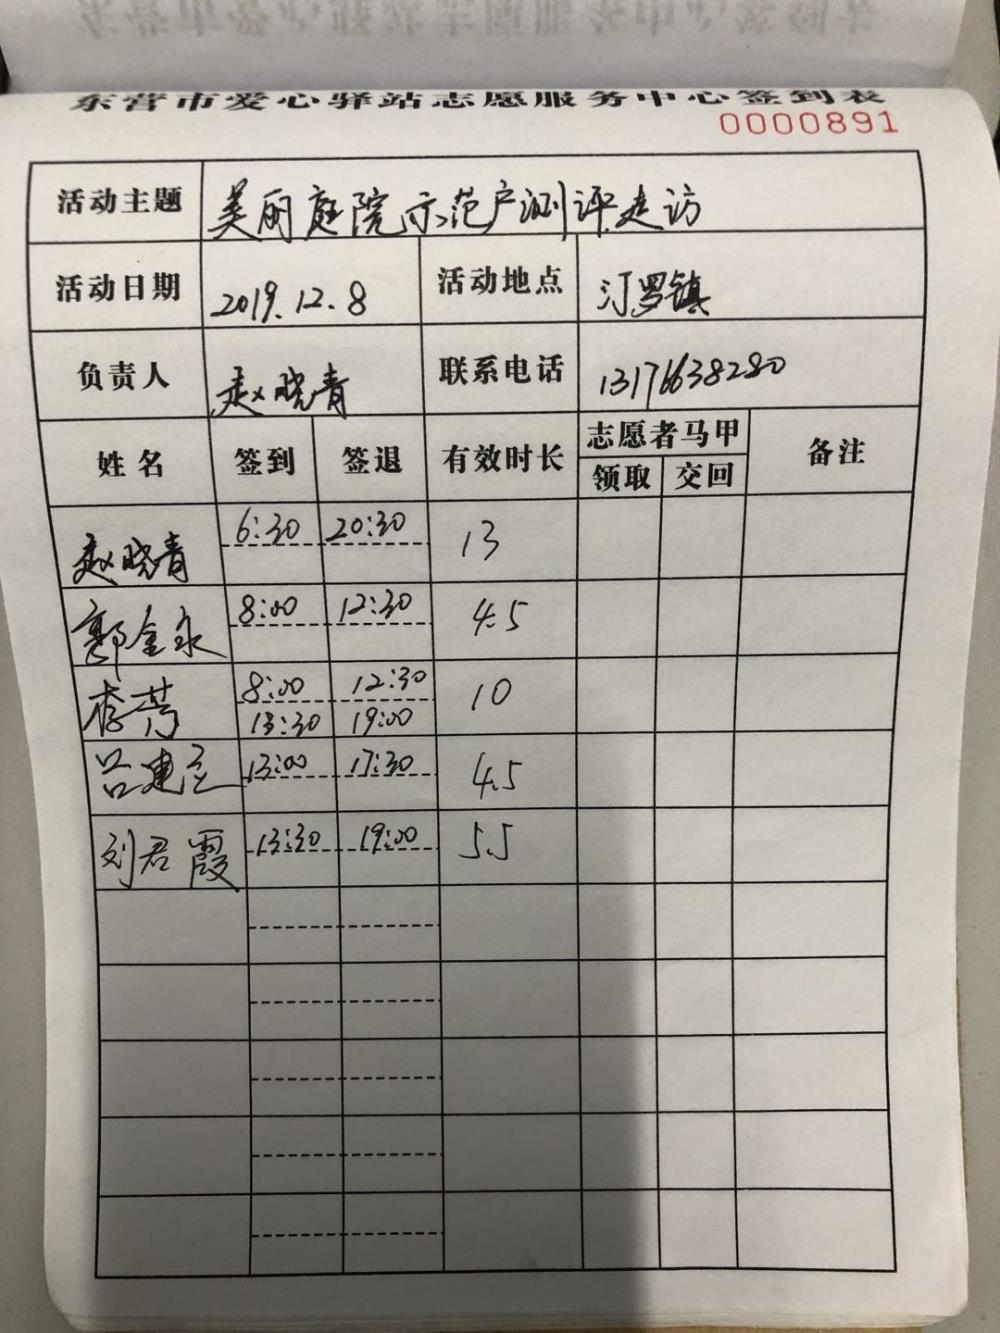 东营市爱心驿站志愿服务中心签到表
0000891
活动主题 美丽庭院示范户测评走访
活动日期 2019.12.8 活动地点 汀罗镇
负责人 赵晓青 联系电话 13176638280
姓名 签到 签退 有效时长 志愿者马甲 备注
领取 交回
赵晓青 6:30 20:30 13
郭金永 8:00 12:30 4.5
李芳 8:00 12:30 10
13:30 19:00
吕建立 13:00 17:30 4.5
刘君霞 13:30 19:00 5.5